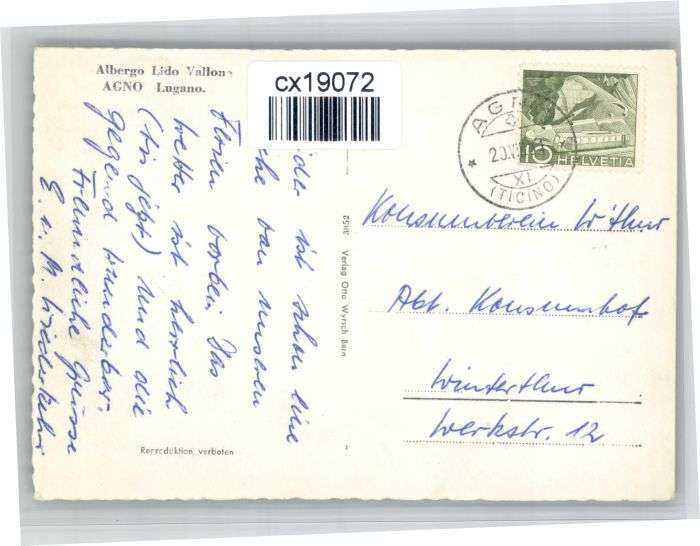 Albergo Lido Vallon
AGNO Lugano.
cx19072
ist schon eine
von unseren
Ferien vorbei. Das
Wetter ist herrlich
(bis jetzt) und die
Gegend wunderbar.
Freundliche Grüsse
E. u. M.
Reproduktion verboten
31152 Verlag Otto Wyrsch Bern
AGNO
20.VI
XI
(TICINO)
10 HELVETIA
Konsumverein W'thur
Abt. Konsumhof
Winterthur
Werkstr. 12